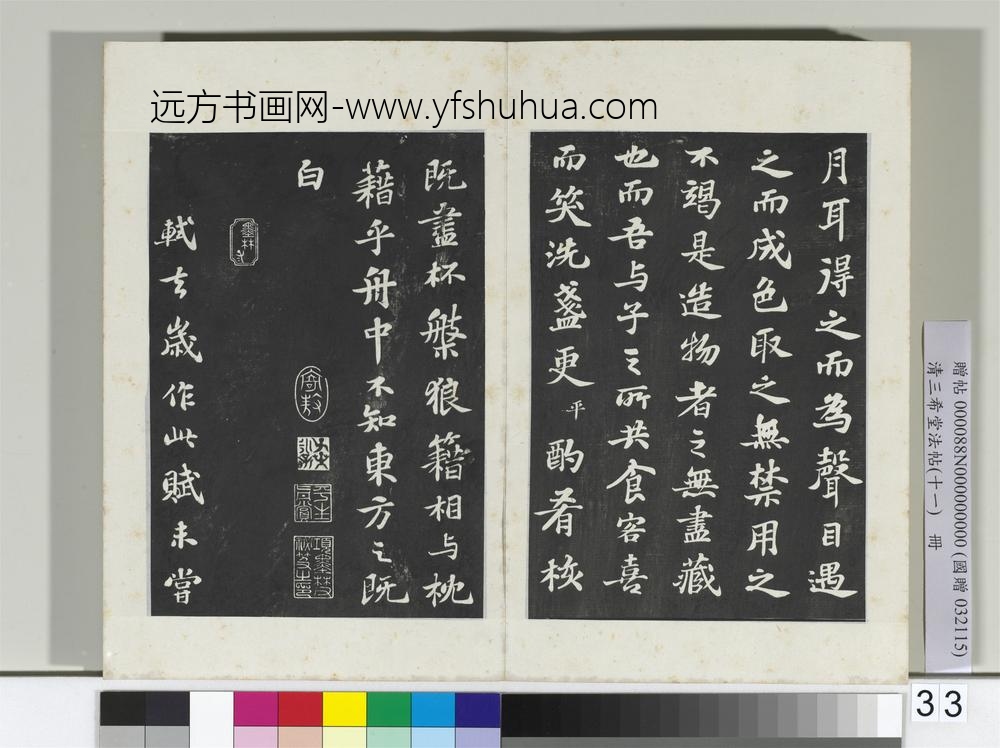 远方书画网-www.yfshuhua.com
月耳得之而為聲目遇
之而成色取之無禁用之
不竭是造物者之無盡藏
也而吾与子之所共食客喜
而笑洗盞更平酌肴核
既盡杯槃狼籍相与枕
藉乎舟中不知東方之既
白
軾去歲作此賦未嘗
贈帖 000088N000000000 (國贈 032115)
清三希堂法帖(十一) 冊
33